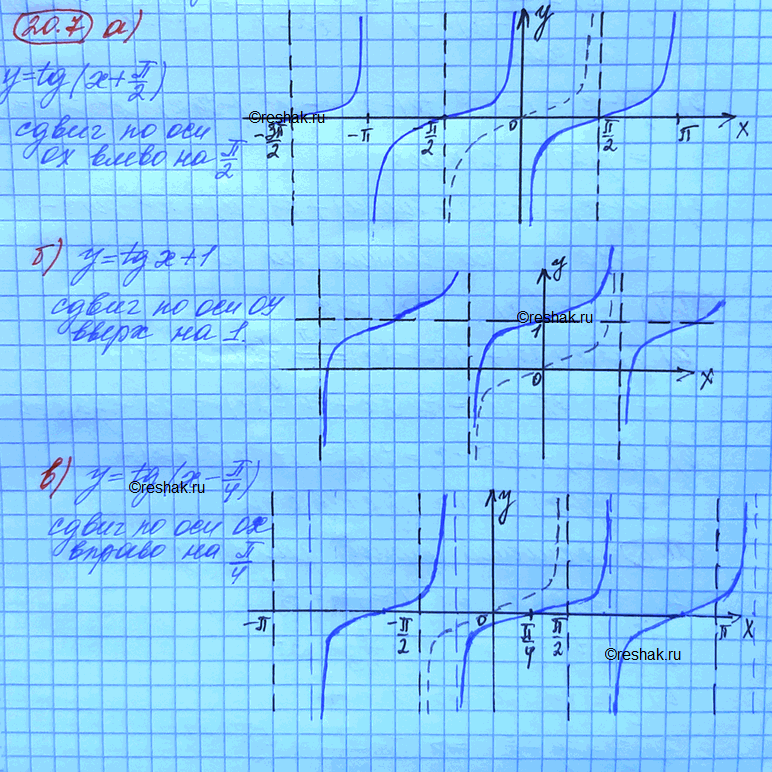 20.7 а)
y = tg(x + π/2)
сдвиг по оси
ох влево на π/2
y
-3π/2 -π π/2 0 π/2 π x
©reshak.ru
б) y = tg x + 1
сдвиг по оси оу
вверх на 1.
y
1
0 x
©reshak.ru
в) y = tg(x - π/4)
©reshak.ru
сдвиг по оси ох
вправо на π/4
y
-π -π/2 0 π/4 π/2 π x
©reshak.ru